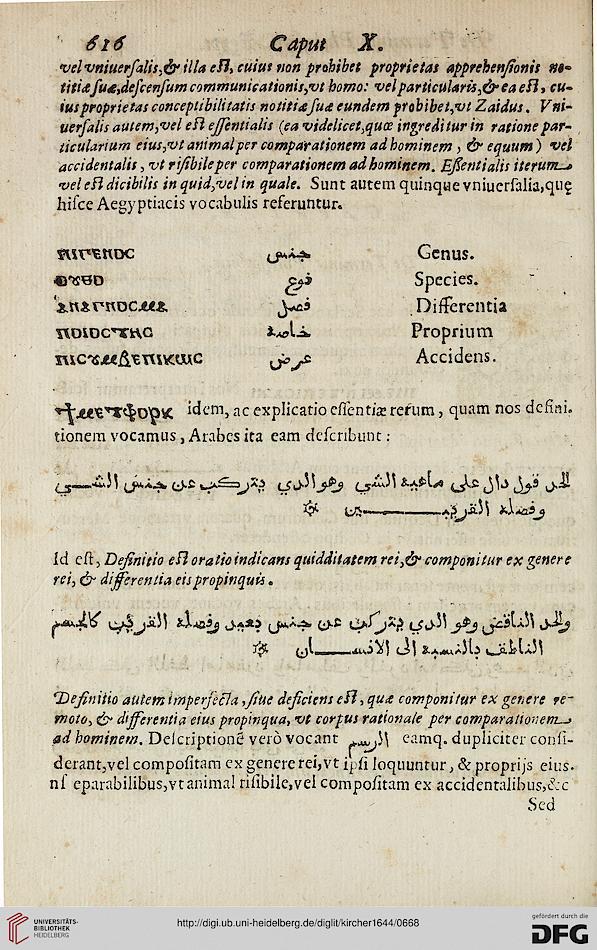 616 Caput X.
vel vniuersalis,& illa est, cuius non prohibet proprietas apprehensionis no-
titiæ suæ,descensum communicationis,vt homo: vel particularis,& ea est, cu-
ius proprietas conceptibilitatis notitiæ suæ eundem prohibet,vt Zaidus. Vni-
uersalis autem,vel est essentialis (ea videlicet,quæ ingreditur in ratione par-
ticularium eius,vt animal per comparationem ad hominem, & equum) vel
accidentalis, vt risibile per comparationem ad hominem. Essentialis iterum
vel est dicibilis in quid,vel in quale. Sunt autem quinque vniuersalia,quę
hisce Aegyptiacis vocabulis referuntur.
ⲡⲓⲅⲉⲛⲟⲥ جنس Genus.
نوع Species.
فصل Differentia
خاصة Proprium
عرض Accidens.
idem, ac explicatio essentiæ rerum, quam nos defini.
tionem vocamus, Arabes ita eam describunt:
لحد قول دال على ماهية الشي وهو الدي يتركب عن جنس الشي
وفصله القريبين
Id est, Definitio est oratio indicans quidditatem rei,& componitur ex genere
rei, & differentia eis propinquis.
ولحد الناقص وهو الدي يتركب عن جنس بعيد وفصله القريب كالجسم
الناطق بالنسبة الى الانسان
Definitio autem imperfecta, siue deficiens est, quæ componitur ex genere re-
moto, & differentia eius propinqua, vt corpus rationale per comparationem
ad hominem. Descriptionē verò vocant الرسم eamq. dupliciter consi-
derant,vel compositam ex genere rei,vt ipsi loquuntur, & proprijs eius.
nſ eparabilibus,vt animal risibile,vel compositam ex accidentalibus,&c
Sed
UNIVERSITÄTS-
BIBLIOTHEK
HEIDELBERG
http://digi.ub.uni-heidelberg.de/diglit/kircher1644/0668
gefördert durch die
DFG